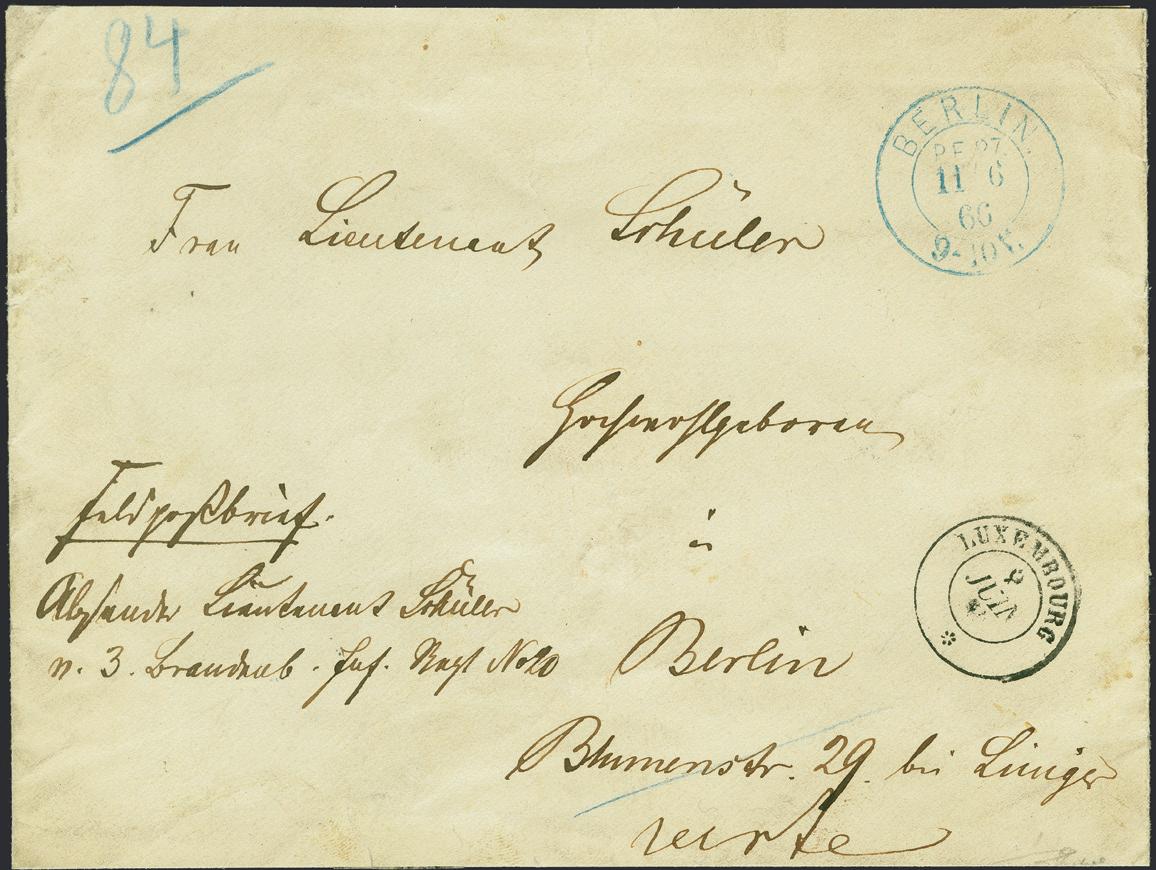 84
BERLIN
11 6
66
Frau Lieutenant Schüler
Hochwohlgeboren
Feldpostbrief.
in
LUXEMBOURG
9
JUIN
Absender Lieutenant Schüler
v. 3. Brandenb. Inf. Regt No 20
Berlin
Blumenstr. 29. bei